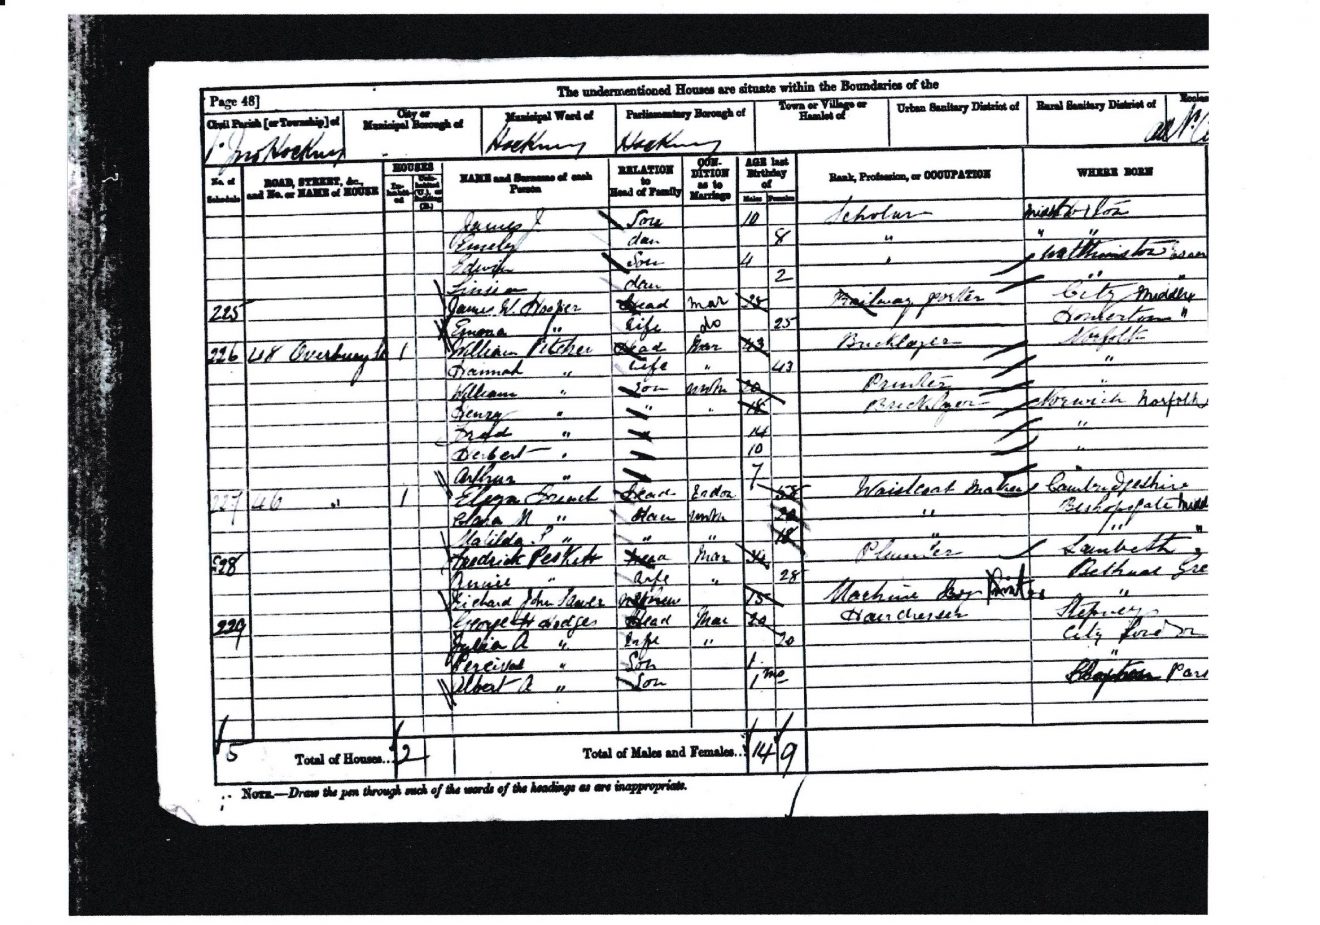 The undermentioned Houses are situate within the Boundaries of the
Page 48]
Civil Parish [or Township] of
City or Municipal Borough of
Municipal Ward of
Parliamentary Borough of
Town or Village or Hamlet of
Urban Sanitary District of
Rural Sanitary District of
Hackney Hackney Hackney
No. of Schedule
ROAD, STREET, &c., and No. or NAME of HOUSE
HOUSES
Inhabited
Uninhabited (U.), or Building (B.)
NAME and Surname of each Person
RELATION to Head of Family
CONDITION as to Marriage
AGE last Birthday of
Males Females
Rank, Profession, or OCCUPATION
WHERE BORN
James J Son 10 Scholar
Emily dau 8 " " "
Edwin Son 4 " Walthamstow Essex
dau 2 " "
225 James W. Hooper Head Mar 28 Railway porter City Middlx
Emma " Wife do 25 Homerton "
226 48 Overbury St 1 William Pitcher Head Mar 43 Bricklayer Norfolk
Hannah " Wife " 43
William " Son Unm 20 Printer "
Henry " " " 18 Bricklayer Norwich Norfolk
Fred " " 14 "
Herbert " " 10 "
Arthur " " 7 "
227 46 " 1 Eliza French Head Widow 58 Waistcoat Maker Cambridgeshire
Clara M " Dau Unm 20 " Bishopsgate Midd
Matilda " " " 18 " "
228 Fredrick Peskett Head Mar Plumber Lambeth
" Wife " 28 Bethnal Gre
Richard John Nephew 15 Machine Boy Printer "
229 George H Hodges Head Mar 20 Hairdresser Stepney
Julia A " Wife " 20 City
Percival " Son 1 "
Albert A " Son 1 mo
5 Total of Houses... 2 Total of Males and Females... 14 9
NOTE.—Draw the pen through such of the words of the headings as are inappropriate.